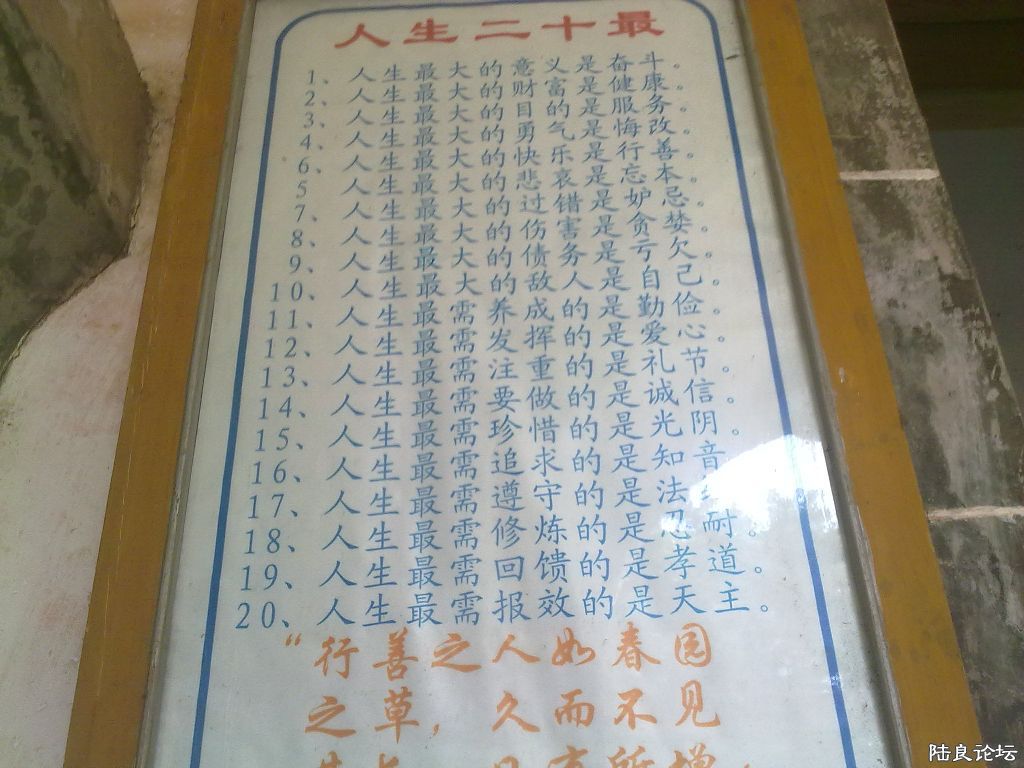 人生二十最
1、人生最大的意义是奋斗。
2、人生最大的财富是健康。
3、人生最大的目的是服务。
4、人生最大的勇气是悔改。
6、人生最大的快乐是行善。
5、人生最大的悲哀是忘本。
7、人生最大的过错是妒忌。
8、人生最大的伤害是贪婪。
9、人生最大的债务是亏欠。
10、人生最大的敌人是自己。
11、人生最需养成的是勤俭。
12、人生最需发挥的是爱心。
13、人生最需注重的是礼节。
14、人生最需要做的是诚信。
15、人生最需珍惜的是光阴。
16、人生最需追求的是知音
17、人生最需遵守的是法
18、人生最需修炼的是忍耐。
19、人生最需回馈的是孝道。
20、人生最需报效的是天主。
“行善之人如春园
之草，久而不见
所增
陆良论坛